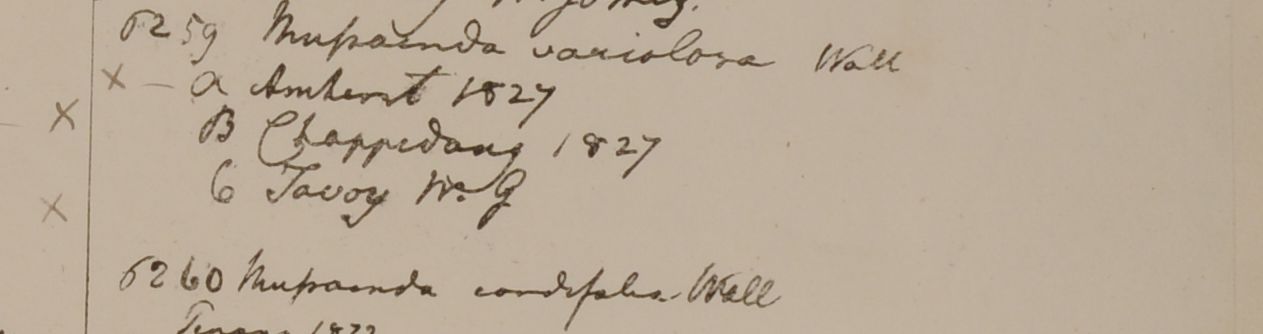 W. Gomez.
6259 Mussaenda variolosa Wall
× – a Amherst 1827
× B Chappedang 1827
× C Tavoy W. G
6260 Mussaenda cordifolia Wall
Penang 1822